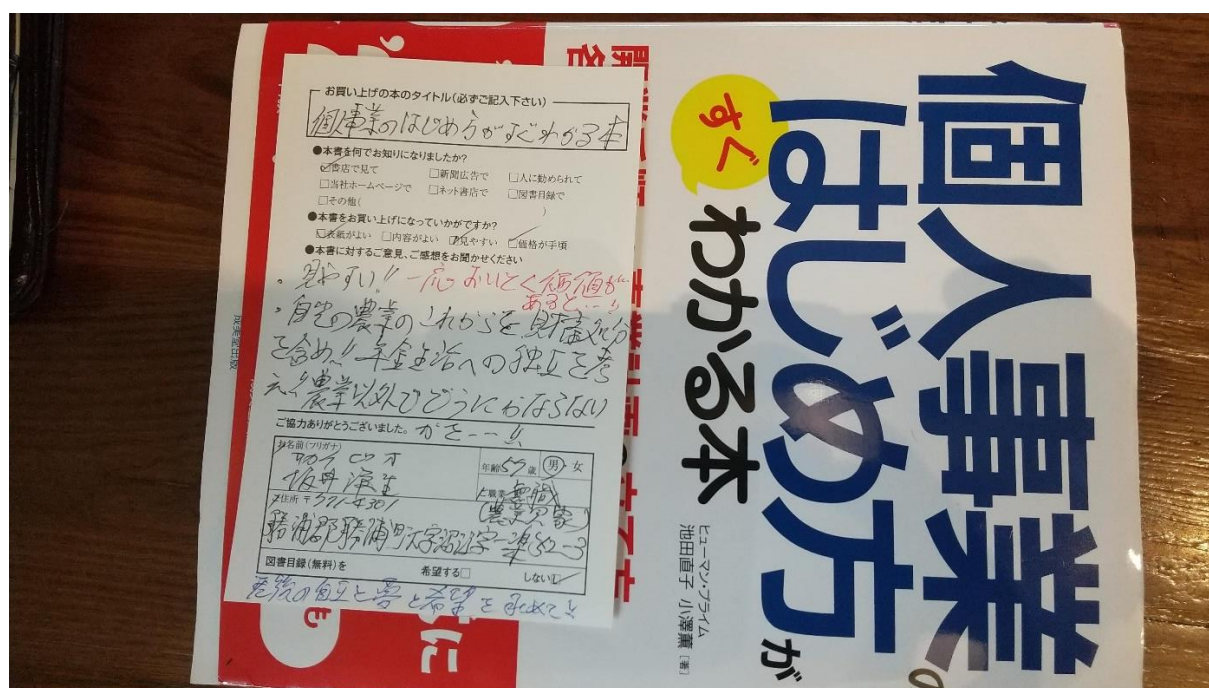 お買い上げの本のタイトル(必ずご記入下さい)
個人事業のはじめ方がすぐわかる本
●本書を何でお知りになりましたか?
☑書店で見て □新聞広告で □人に勧められて
□当社ホームページで □ネット書店で □図書目録で
□その他( )
●本書をお買い上げになっていかがですか?
☑表紙がよい □内容がよい ☑見やすい ☑価格が手頃
●本書に対するご意見、ご感想をお聞かせください
・見やすい!! 一応おいとく価値が
あると--!!
・自宅の農業のこれからを見
を含め!! 年金生活への独立を考
え!! 農業以外でどうにかならない
ご協力ありがとうございました。かを--!!
お名前(フリガナ)
年齢57歳 男・女
ご職業 無職
ご住所 〒771-4301
(農業
勝浦郡勝浦町大字沼江字
図書目録(無料)を 希望する□ しない☑
老後の自立と夢と希望を求めて
個人事業
はじめ方が
すぐ
わかる本
ヒューマン・プライム
池田直子 小澤薫[著]
成美堂出版